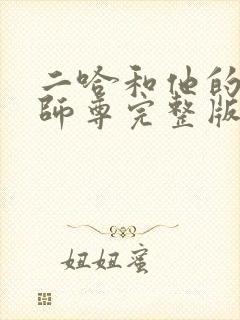 二哈和他的
師尊完整版
妞妞蜜